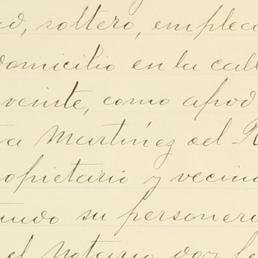 ed, soltero, emplea
domicilio en la call
veinte, como apod
ta Martínez del R
opietario y vecin
tando su personeri
el notario doy fe